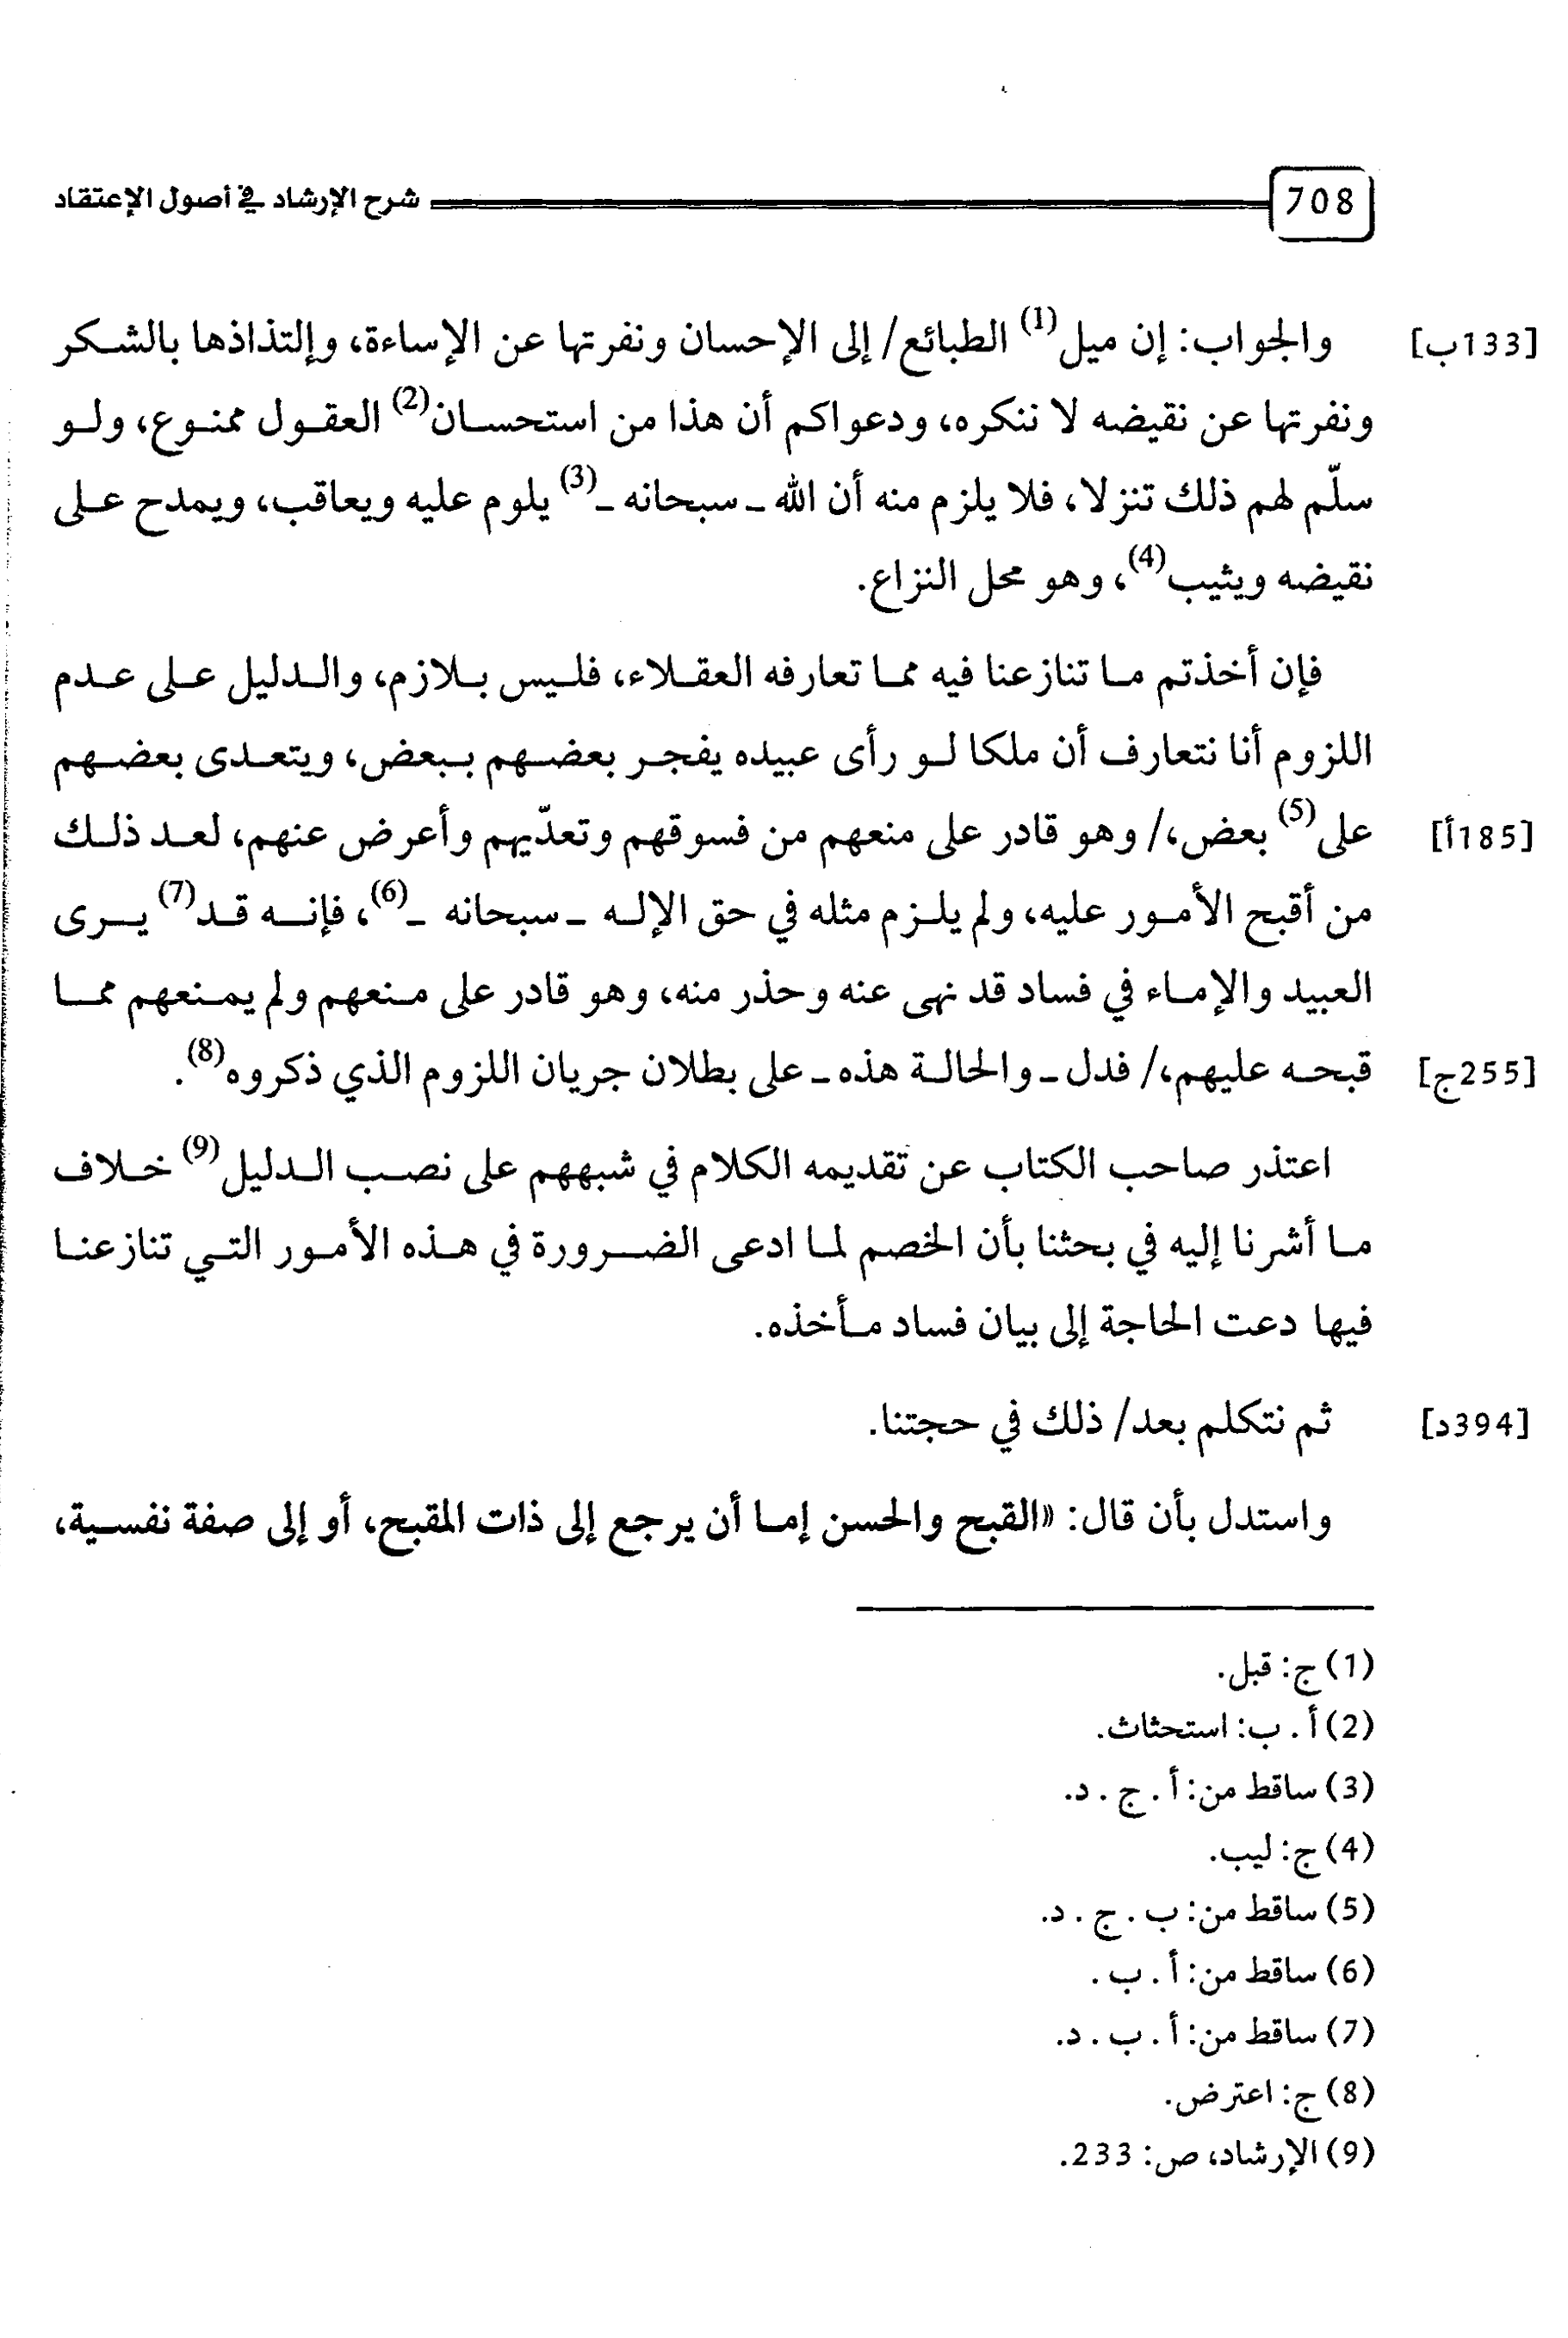 708 شرح الإرشاد في أصول الإعتقاد
[133ب] والجواب: إن ميل(1) الطبائع/ إلى الإحسان ونفرتها عن الإساءة، وإلتذاذها بالشكر
ونفرتها عن نقيضه لا ننكره، ودعواكم أن هذا من استحسان(2) العقول ممنوع، ولو
سلّم لهم ذلك تنزلا، فلا يلزم منه أن الله ـ سبحانه ـ(3) يلوم عليه ويعاقب، ويمدح على
نقيضه ويثيب(4)، وهو محل النزاع.
فإن أخذتم ما تنازعنا فيه مما تعارفه العقلاء، فليس بلازم، والدليل على عدم
اللزوم أنا نتعارف أن ملكا لو رأى عبيده يفجر بعضهم ببعض، ويتعدى بعضهم
[185أ] على(5) بعض،/ وهو قادر على منعهم من فسوقهم وتعدّيهم وأعرض عنهم، لعد ذلك
من أقبح الأمور عليه، ولم يلزم مثله في حق الإله ـ سبحانه ـ(6)، فإنه قد(7) يرى
العبيد والإماء في فساد قد نهى عنه وحذر منه، وهو قادر على منعهم ولم يمنعهم مما
[255ج] قبحه عليهم،/ فدل ـ والحالة هذه ـ على بطلان جريان اللزوم الذي ذكروه(8).
اعتذر صاحب الكتاب عن تقديمه الكلام في شبههم على نصب الدليل(9) خلاف
ما أشرنا إليه في بحثنا بأن الخصم لما ادعى الضرورة في هذه الأمور التي تنازعنا
فيها دعت الحاجة إلى بيان فساد مأخذه.
[394د] ثم نتكلم بعد/ ذلك في حجتنا.
واستدل بأن قال: «القبح والحسن إما أن يرجع إلى ذات المقبح، أو إلى صفة نفسية،
(1) ج: قبل.
(2) أ . ب: استحثاث.
(3) ساقط من: أ . ج . د.
(4) ج: ليب.
(5) ساقط من: ب . ج . د.
(6) ساقط من: أ . ب .
(7) ساقط من: أ . ب . د.
(8) ج: اعترض.
(9) الإرشاد، ص: 233.